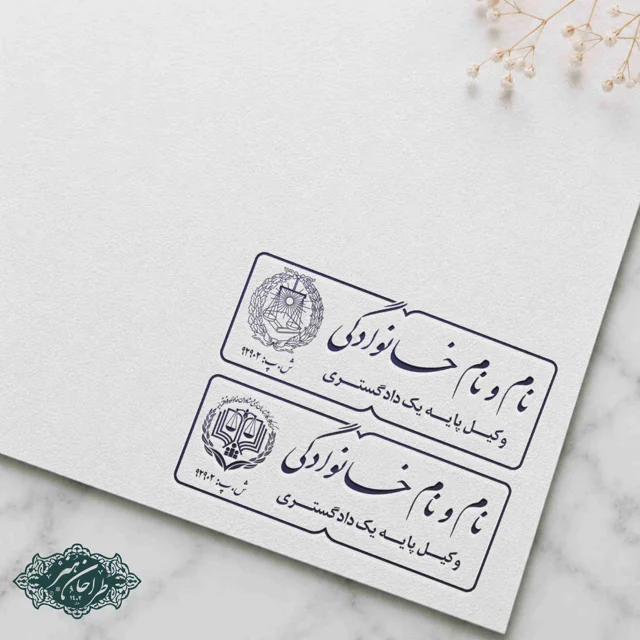 نام و نام خانوادگی
وکیل پایه یک دادگستری
ش.پ: ۹۲۹۰۲
نام و نام خانوادگی
وکیل پایه یک دادگستری
ش.پ: ۹۲۹۰۲